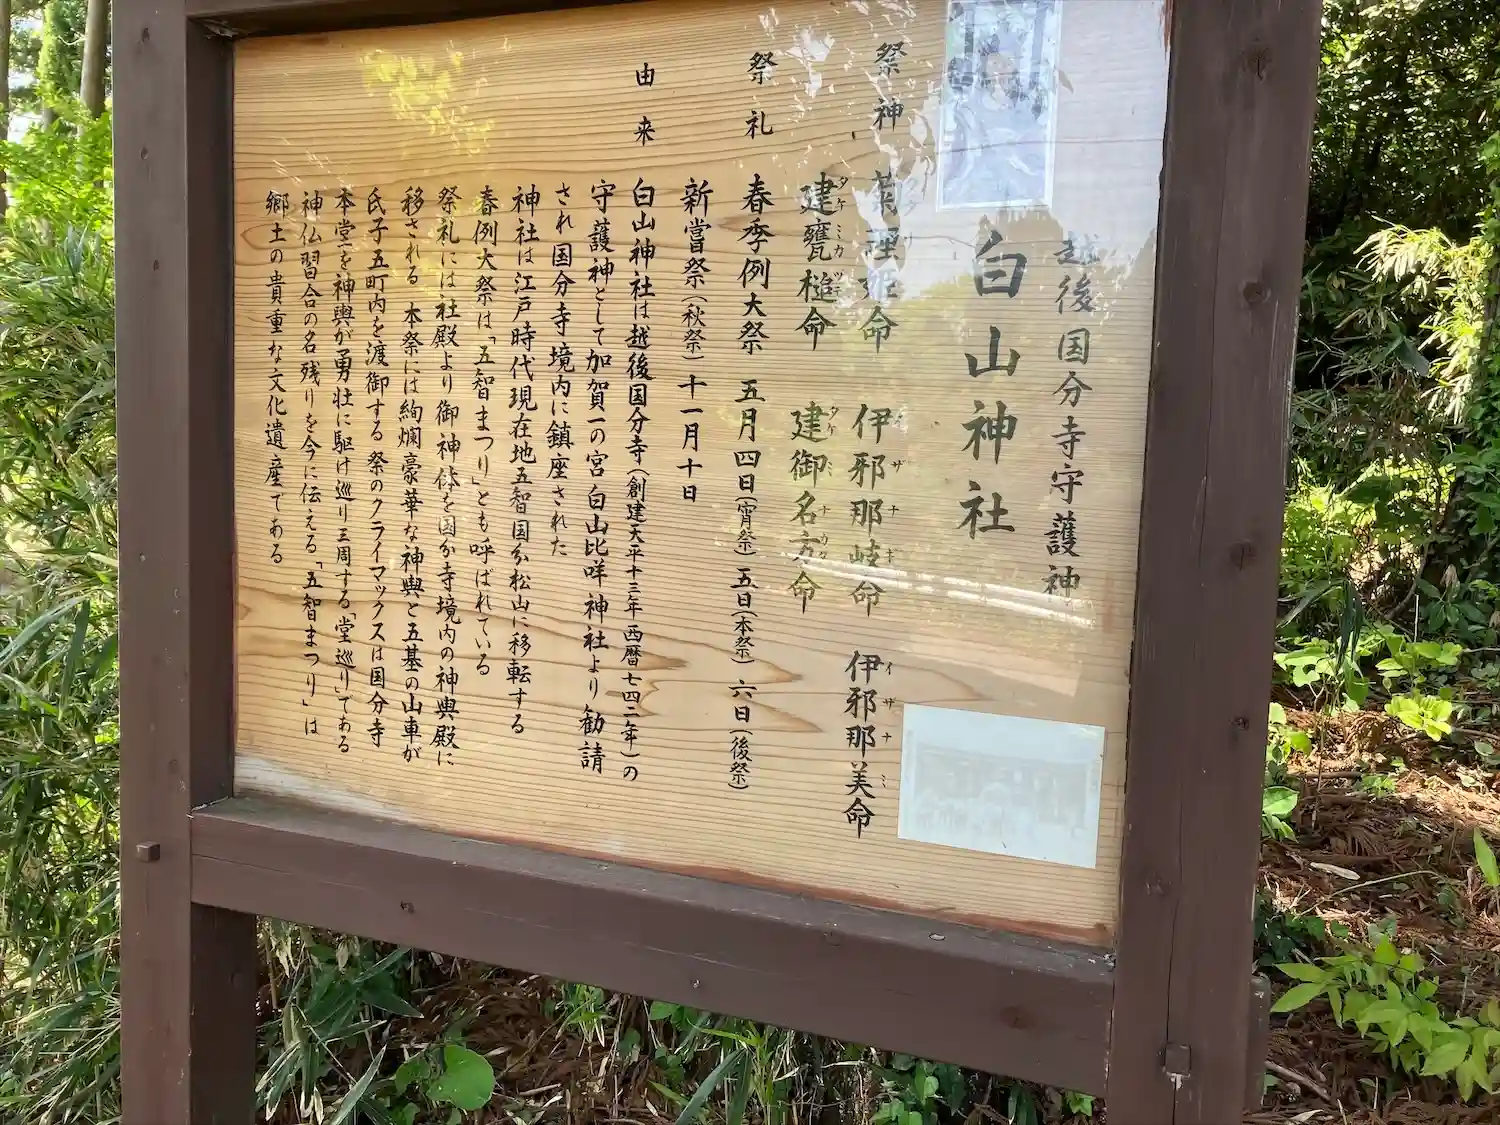 越後国分寺守護神
白山神社
祭神 菊理姫命 伊邪那岐命 伊邪那美命
イザナギ イザナミ
建甕槌命 建御名方命
タケミカヅチ タケミナカタ
祭礼 春季例大祭 五月四日(宵祭) 五日(本祭) 六日(後祭)
新嘗祭(秋祭) 十一月十日
由来 白山神社は越後国分寺(創建天平十三年西暦七四一年)の
守護神として加賀一の宮白山比咩神社より勧請
され国分寺境内に鎮座された
神社は江戸時代現在地五智国分松山に移転する
春例大祭は「五智まつり」とも呼ばれている
祭礼には社殿より御神体を国分寺境内の神輿殿に
移される 本祭には絢爛豪華な神輿と五基の山車が
氏子五町内を渡御する 祭のクライマックスは国分寺
本堂を神輿が勇壮に駆け巡り三周する「堂巡り」である
神仏習合の名残りを今に伝える「五智まつり」は
郷土の貴重な文化遺産である